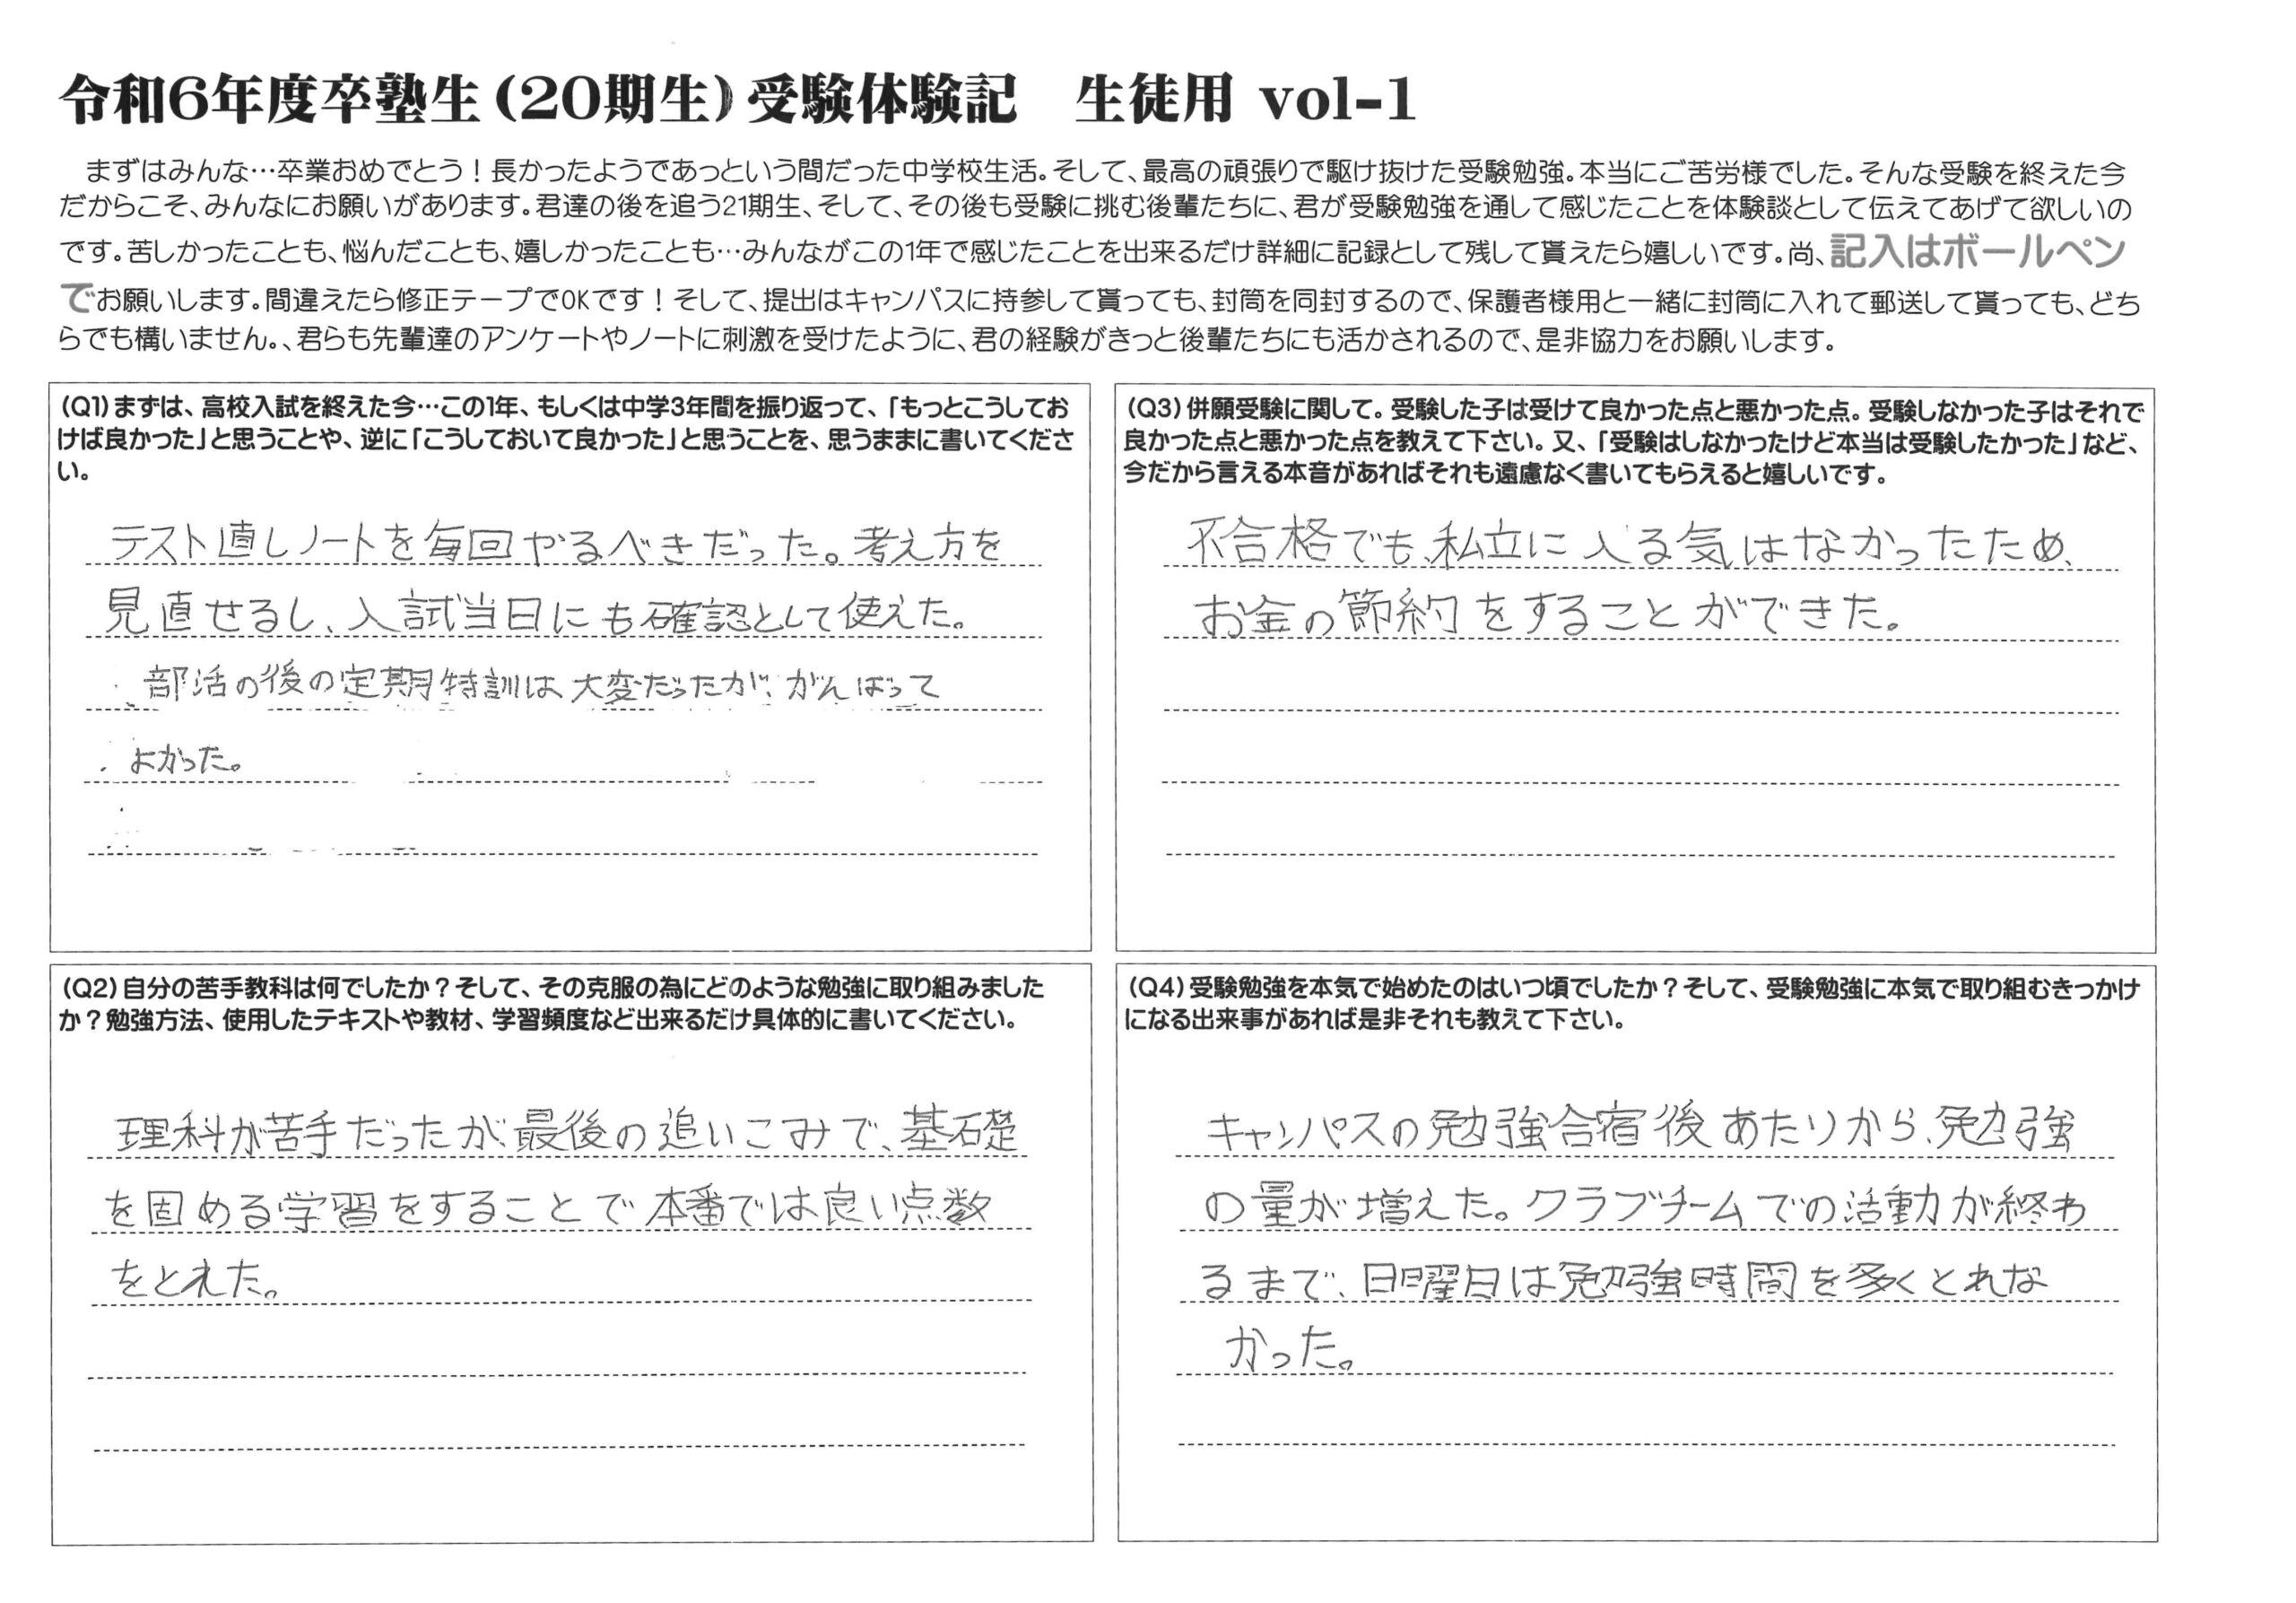 令和6年度卒塾生(20期生)受験体験記　生徒用 vol-1
まずはみんな…卒業おめでとう！長かったようであっという間だった中学校生活。そして、最高の頑張りで駆け抜けた受験勉強。本当にご苦労様でした。そんな受験を終えた今
だからこそ、みんなにお願いがあります。君達の後を追う21期生、そして、その後も受験に挑む後輩たちに、君が受験勉強を通して感じたことを体験談として伝えてあげて欲しいの
です。苦しかったことも、悩んだことも、嬉しかったことも…みんながこの1年で感じたことを出来るだけ詳細に記録として残して貰えたら嬉しいです。尚、記入はボールペン
でお願いします。間違えたら修正テープでOKです！そして、提出はキャンパスに持参して貰っても、封筒を同封するので、保護者様用と一緒に封筒に入れて郵送して貰っても、どち
らでも構いません。、君らも先輩達のアンケートやノートに刺激を受けたように、君の経験がきっと後輩たちにも活かされるので、是非協力をお願いします。
(Q1)まずは、高校入試を終えた今…この1年、もしくは中学3年間を振り返って、「もっとこうしてお
けば良かった」と思うことや、逆に「こうしておいて良かった」と思うことを、思うままに書いてくださ
い。
テスト直しノートを毎回やるべきだった。考え方を
見直せるし、入試当日にも確認として使えた。
部活の後の定期特訓は大変だったが、がんばって
よかった。
(Q2)自分の苦手教科は何でしたか？そして、その克服の為にどのような勉強に取り組みました
か？勉強方法、使用したテキストや教材、学習頻度など出来るだけ具体的に書いてください。
理科が苦手だったが、最後の追いこみで、基礎
を固める学習をすることで本番では良い点数
をとれた。
(Q3)併願受験に関して。受験した子は受けて良かった点と悪かった点。受験しなかった子はそれで
良かった点と悪かった点を教えて下さい。又、「受験はしなかったけど本当は受験したかった」など、
今だから言える本音があればそれも遠慮なく書いてもらえると嬉しいです。
不合格でも、私立に入る気はなかったため、
お金の節約をすることができた。
(Q4)受験勉強を本気で始めたのはいつ頃でしたか？そして、受験勉強に本気で取り組むきっかけ
になる出来事があれば是非それも教えて下さい。
キャンパスの勉強合宿後あたりから、勉強
の量が増えた。クラブチームでの活動が終わ
るまで、日曜日は勉強時間を多くとれな
かった。